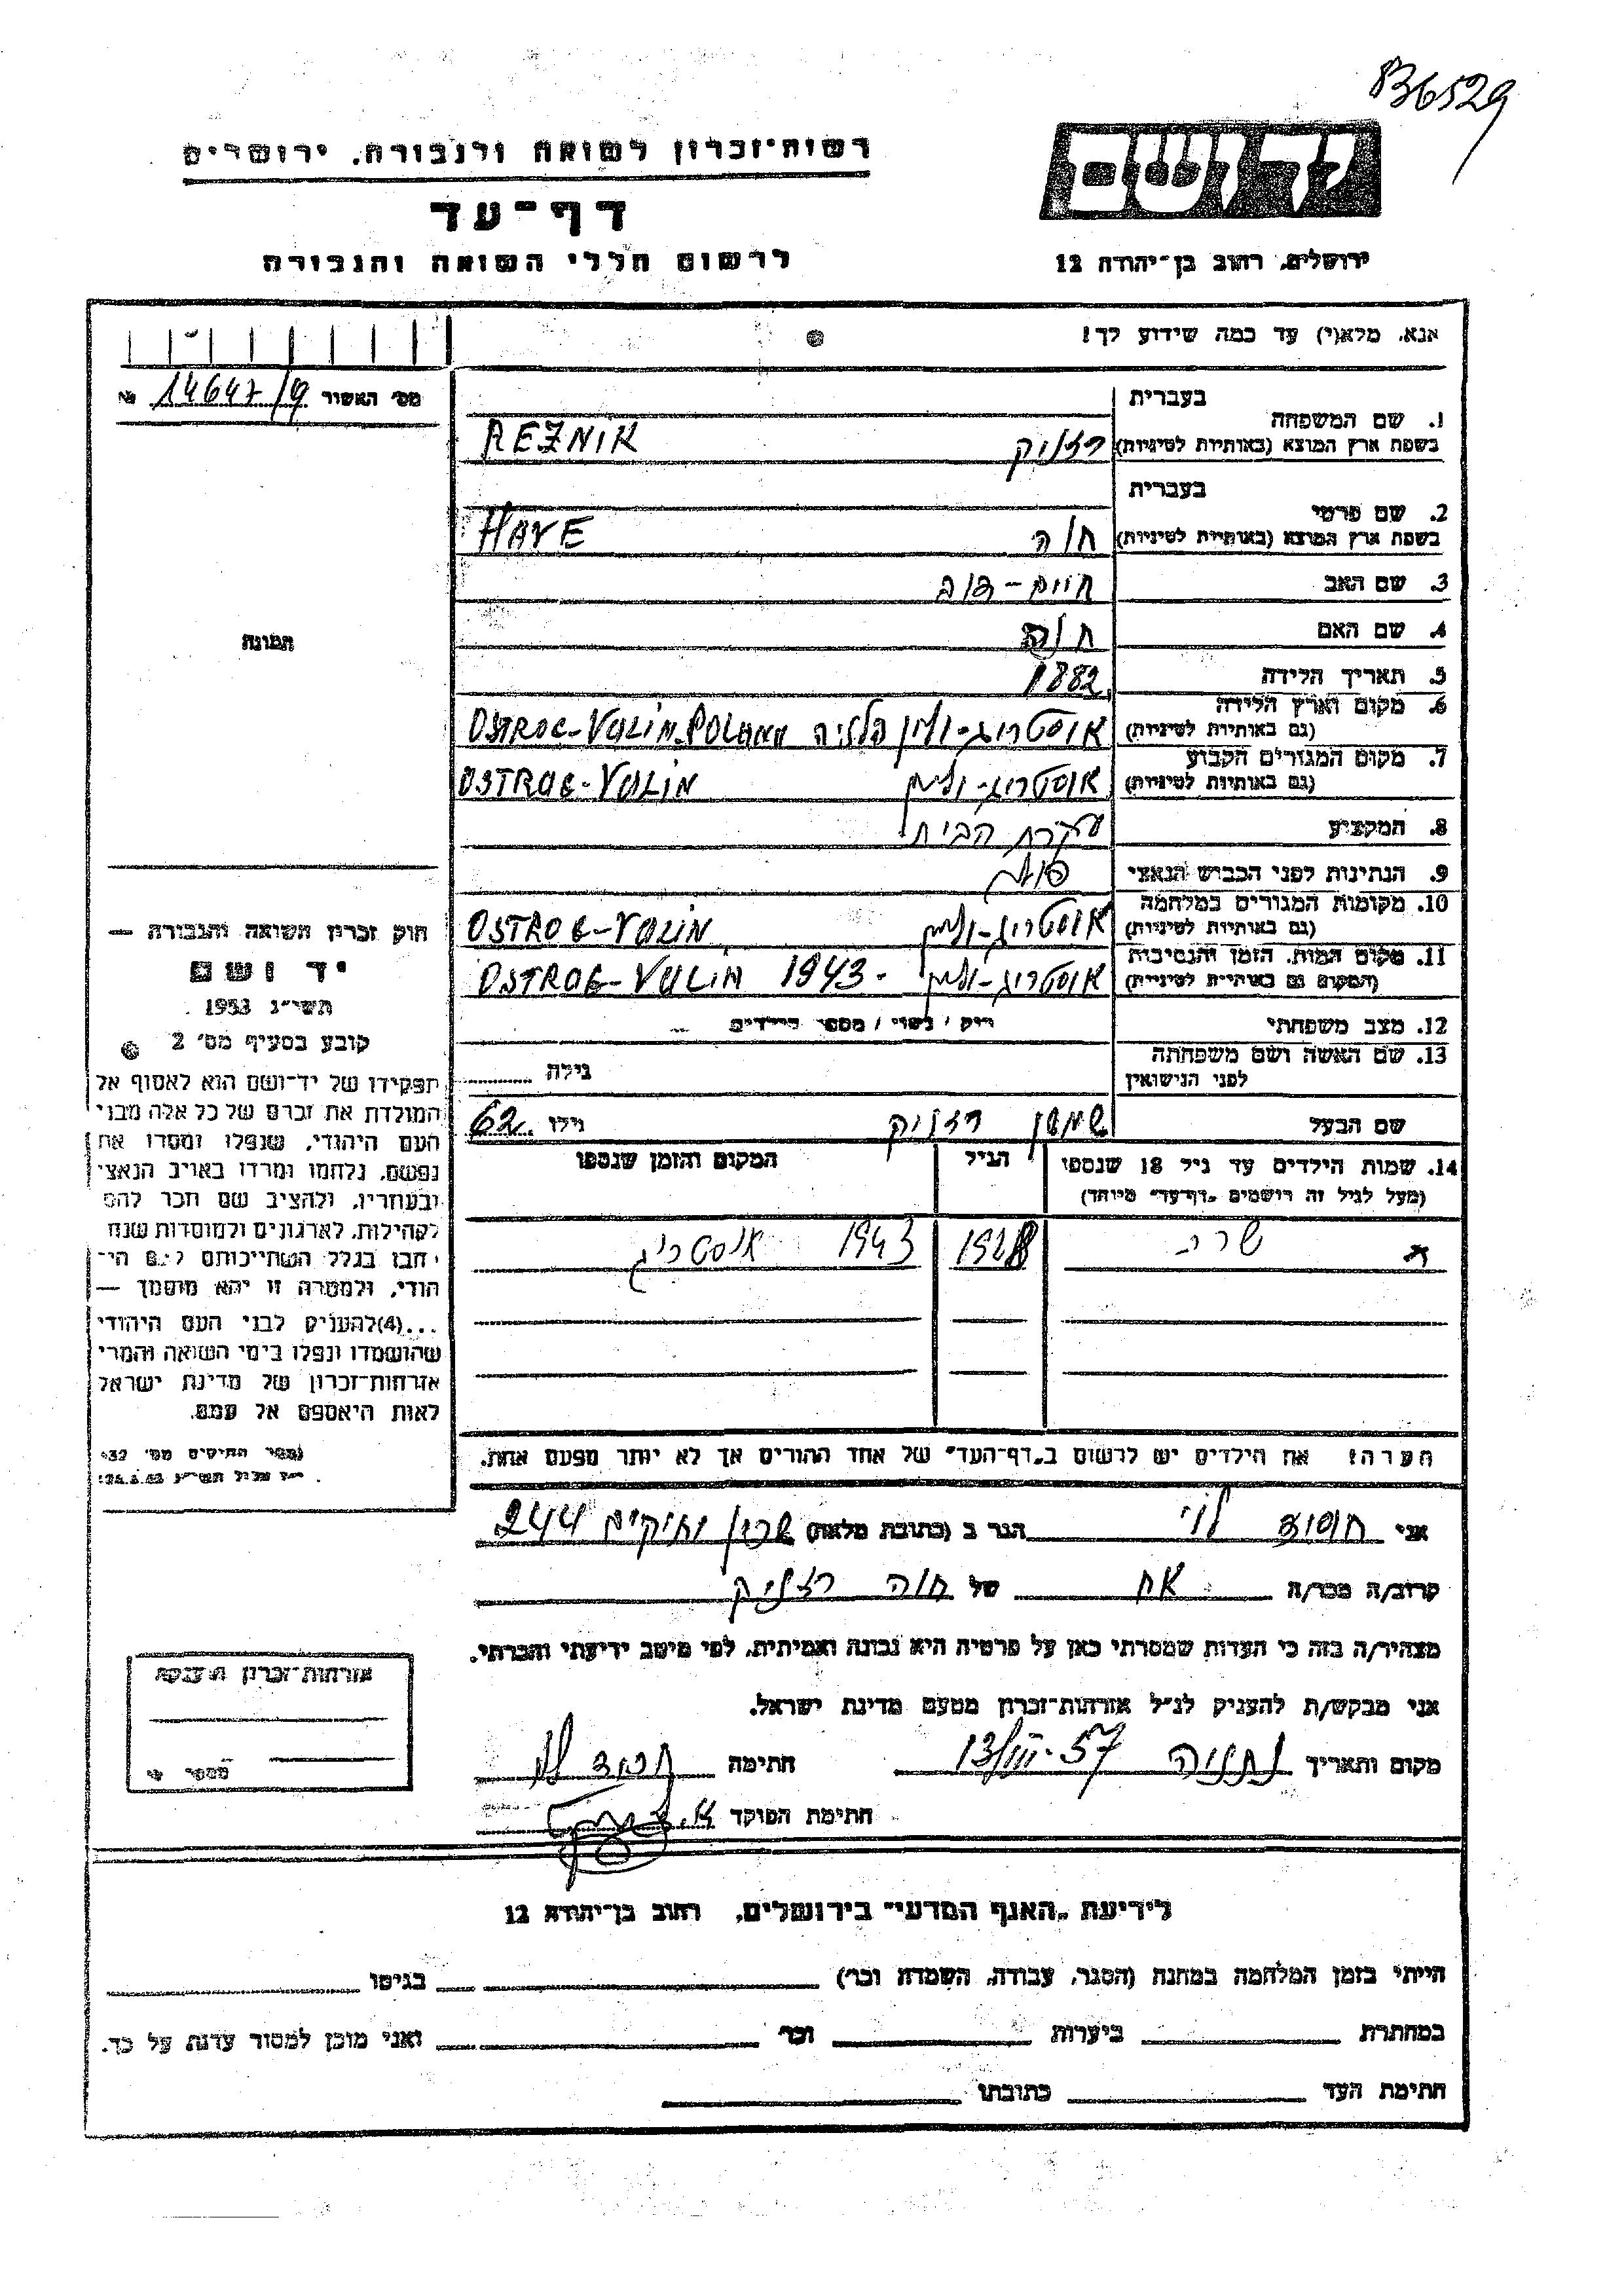 B6529
רשות־זכרון לשואה ולגבורה, ירושלים
יד ושם
דף־עד
לרשום חללי השואה והגבורה
ירושלים, רחוב בן־יהודה 12
אנא, מלא(י) עד כמה שידוע לך!
מס׳ האשור 14647/9
1. שם המשפחה בעברית
בשפת ארץ המוצא (באותיות לטיניות) רזניק REZNIK
2. שם פרטי בעברית
בשפת ארץ המוצא (באותיות לטיניות) חוה HAVE
3. שם האב חיים-דוב
4. שם האם חוה
5. תאריך הלידה 1882
6. מקום וארץ הלידה
(גם באותיות לטיניות) אוסטרוג-וולין פולניה OSTROG-VOLIN-POLAND
7. מקום המגורים הקבוע
(גם באותיות לטיניות) אוסטרוג-וולין OSTROG-VOLIN
8. המקצוע עקרת הבית
9. הנתינות לפני הכבוש הנאצי פולין
10. מקומות המגורים במלחמה
(גם באותיות לטיניות) אוסטרוג-וולין OSTROG-VOLIN
11. מקום המות, הזמן והנסיבות
(המקום גם באותיות לטיניות) אוסטרוג-וולין OSTROG-VOLIN 1943-
12. מצב משפחתי רווק / נשוי / מספר הילדים
13. שם האשה ושם משפחתה
לפני הנישואין גילה
שם הבעל שמשון רזניק גילו 62
14. שמות הילדים עד גיל 18 שנספו הגיל המקום והזמן שנספו
(מעל לגיל זה רושמים „דף־עד״ מיוחד)
שרה 1928 1943 אוסטריג
הערה: את הילדים יש לרשום ב„דף־העד״ של אחד ההורים אך לא יותר מפעם אחת.
תמונה
חוק זכרון השואה והגבורה —
יד ושם
תשי״ג 1953
קובע בסעיף מס׳ 2
תפקידו של יד־ושם הוא לאסוף אל
המולדת את זכרם של כל אלה מבני
העם היהודי, שנפלו ומסרו את
נפשם, נלחמו ומרדו באויב הנאצי
ובעוזריו, ולהציב שם וזכר להם
לקהילות, לארגונים ולמוסדות שנח
חבו בגלל השתייכותם לעם הי־
הודי, ולמטרה זו יהא מוסמך —
...(4)להעניק לבני העם היהודי
שהושמדו ונפלו בימי השואה והמרי
אזרחות־זכרון של מדינת ישראל
לאות היאספם אל עמם.
אני לוי הגר ב (כתובת מלאה) שכון ותיקים 244
קרוב/ה מכר/ה אח של חוה רזניק
מצהיר/ה בזה כי העדות שמסרתי כאן על פרטיה היא נכונה ואמיתית, לפי מיטב ידיעתי והכרתי.
אני מבקש/ת להעניק לנ״ל אזרחות־זכרון מטעם מדינת ישראל.
מקום ותאריך נתניה 13/VII-57 חתימה
חתימת הפוקד
אזרחות־זכרון הוענקה
מספר
לידיעת „האגף המדעי״ בירושלים, רחוב בן־יהודה 12
הייתי בזמן המלחמה במחנה (הסגר, עבודה, השמדה וכו׳) בגיטו
במחתרת ביערות וכו׳ ואני מוכן למסור עדות על כך.
חתימת העד כתובתו